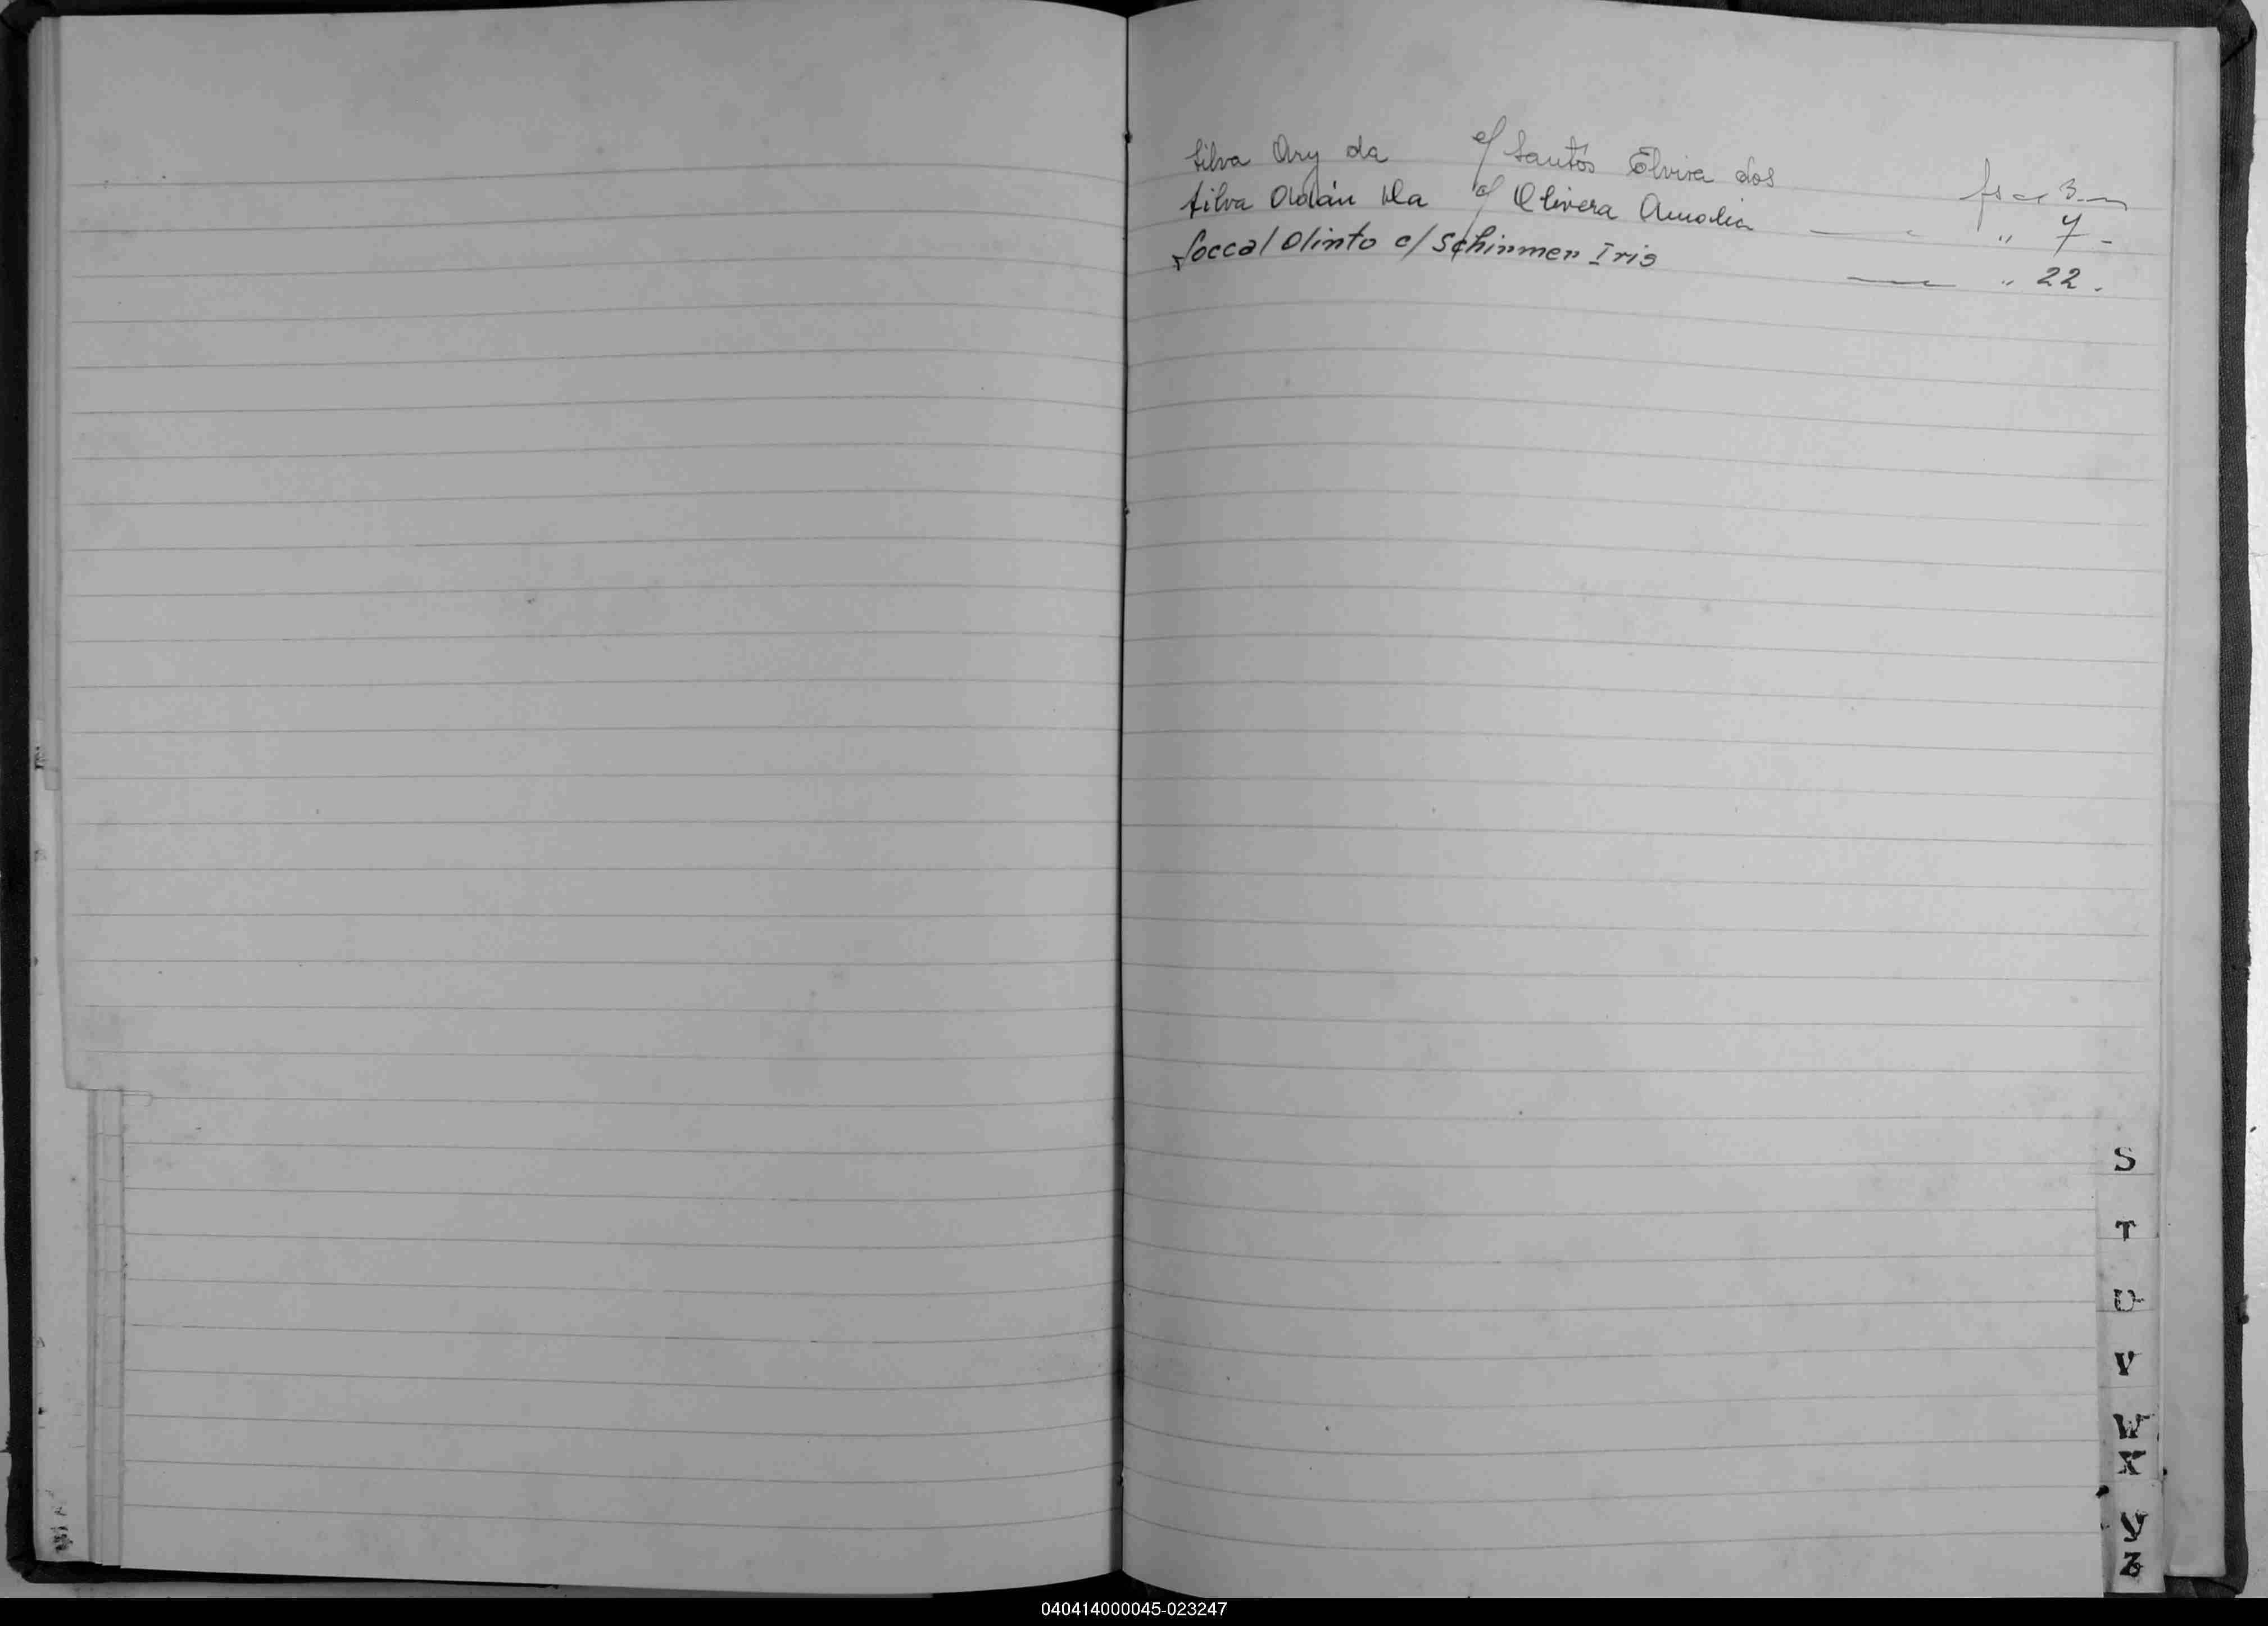 Silva Ary da c/ Santos Elvira dos fs 3
Silva Adán da c/ Olivera Amalia " 7 -
Soccal Olinto c/ Schinmen Iris " 22 .
S
T
U
V
W
X
Y
Z
040414000045-023247